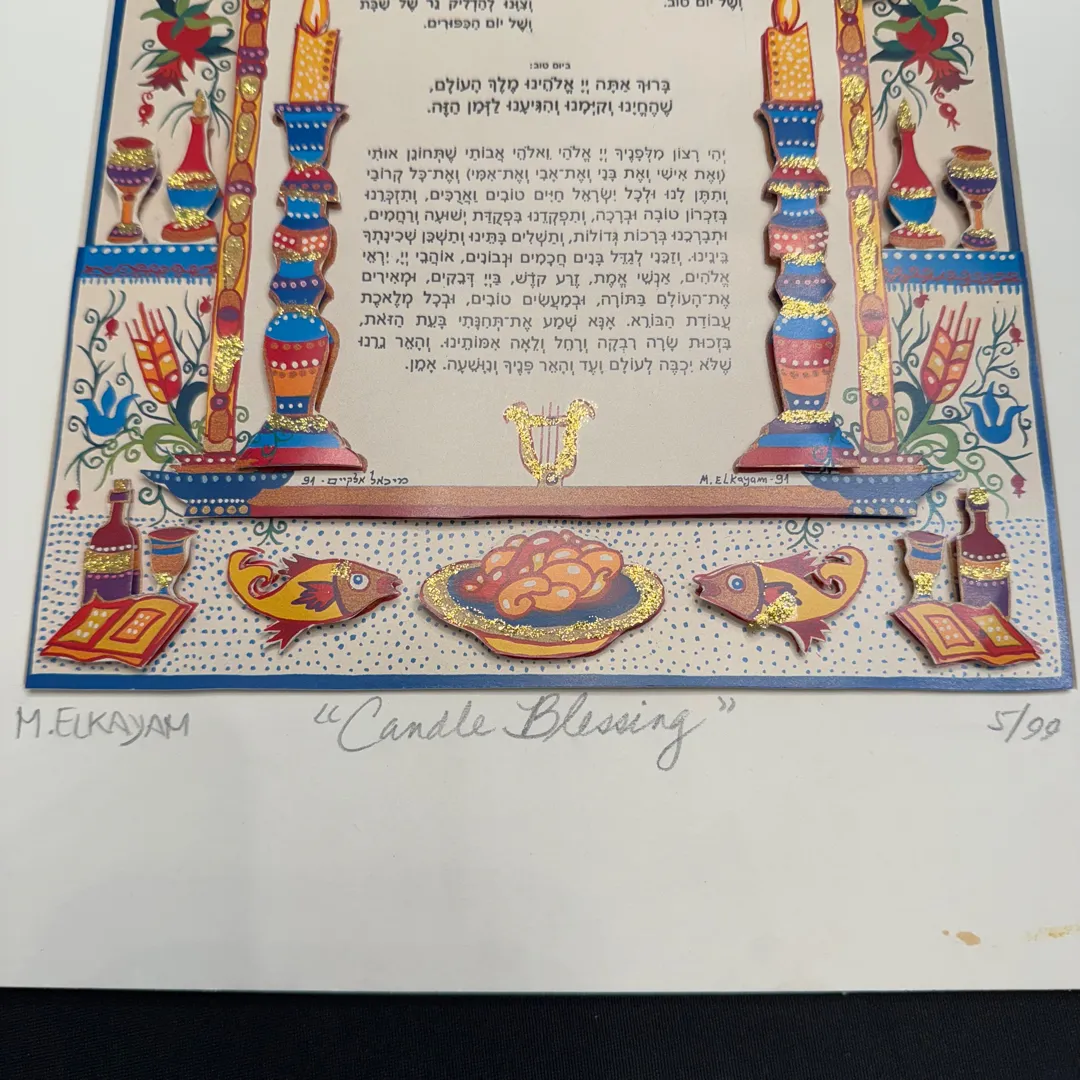 וְצִוָּנוּ לְהַדְלִיק נֵר שֶׁל שַׁבָּת
וְשֶׁל יוֹם הַכִּפּוּרִים.
וְשֶׁל יוֹם טוֹב.
ביום טוב:
בָּרוּךְ אַתָּה יְיָ אֱלֹהֵינוּ מֶלֶךְ הָעוֹלָם,
שֶׁהֶחֱיָנוּ וְקִיְּמָנוּ וְהִגִּיעָנוּ לַזְּמַן הַזֶּה.
יְהִי רָצוֹן מִלְּפָנֶיךָ יְיָ אֱלֹהַי וֵאלֹהֵי אֲבוֹתַי שֶׁתְּחוֹנֵן אוֹתִי
(וְאֶת אִישִׁי וְאֶת בָּנַי וְאֶת־אָבִי וְאֶת־אִמִּי) וְאֶת־כָּל קְרוֹבַי
וְתִתֶּן לָנוּ וּלְכָל יִשְׂרָאֵל חַיִּים טוֹבִים וַאֲרֻכִּים, וְתִזְכְּרֵנוּ
בְּזִכְרוֹן טוֹבָה וּבְרָכָה, וְתִפְקְדֵנוּ בִּפְקֻדַּת יְשׁוּעָה וְרַחֲמִים,
וּתְבָרְכֵנוּ בְּרָכוֹת גְּדוֹלוֹת, וְתַשְׁלִים בָּתֵּינוּ וְתַשְׁכֵּן שְׁכִינָתְךָ
בֵּינֵינוּ. וְזַכֵּנִי לְגַדֵּל בָּנִים חֲכָמִים וּנְבוֹנִים, אוֹהֲבֵי יְיָ, יִרְאֵי
אֱלֹהִים, אַנְשֵׁי אֱמֶת, זֶרַע קֹדֶשׁ, בַּיְיָ דְּבֵקִים, וּמְאִירִים
אֶת־הָעוֹלָם בַּתּוֹרָה, וּבְמַעֲשִׂים טוֹבִים, וּבְכָל מְלָאכֶת
עֲבוֹדַת הַבּוֹרֵא. אָנָּא שְׁמַע אֶת־תְּחִנָּתִי בָּעֵת הַזֹּאת,
בִּזְכוּת שָׂרָה רִבְקָה וְרָחֵל וְלֵאָה אִמּוֹתֵינוּ. וְהָאֵר נֵרֵנוּ
שֶׁלֹּא יִכְבֶּה לְעוֹלָם וָעֶד וְהָאֵר פָּנֶיךָ וְנִוָּשֵׁעָה. אָמֵן.
מיכאל אלקיים - 91
M. ELKayam-91
M. ELKAYAM
"Candle Blessing"
5/99